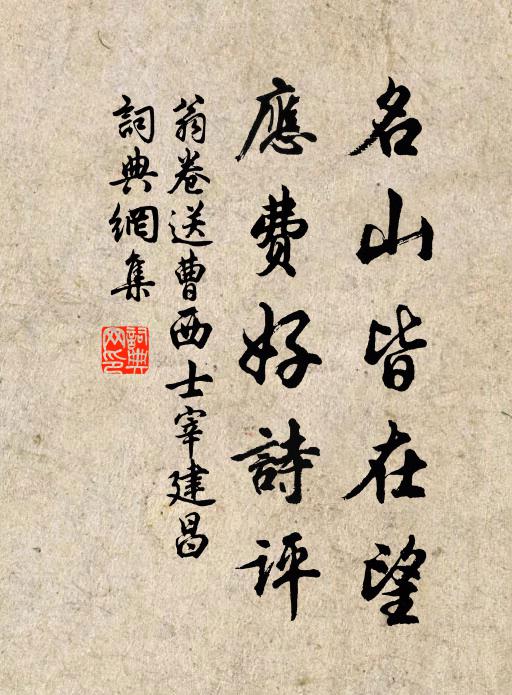 名山皆在望
應費好詩評
翁卷送曹西士宰建昌
詞典網集
詞典网印